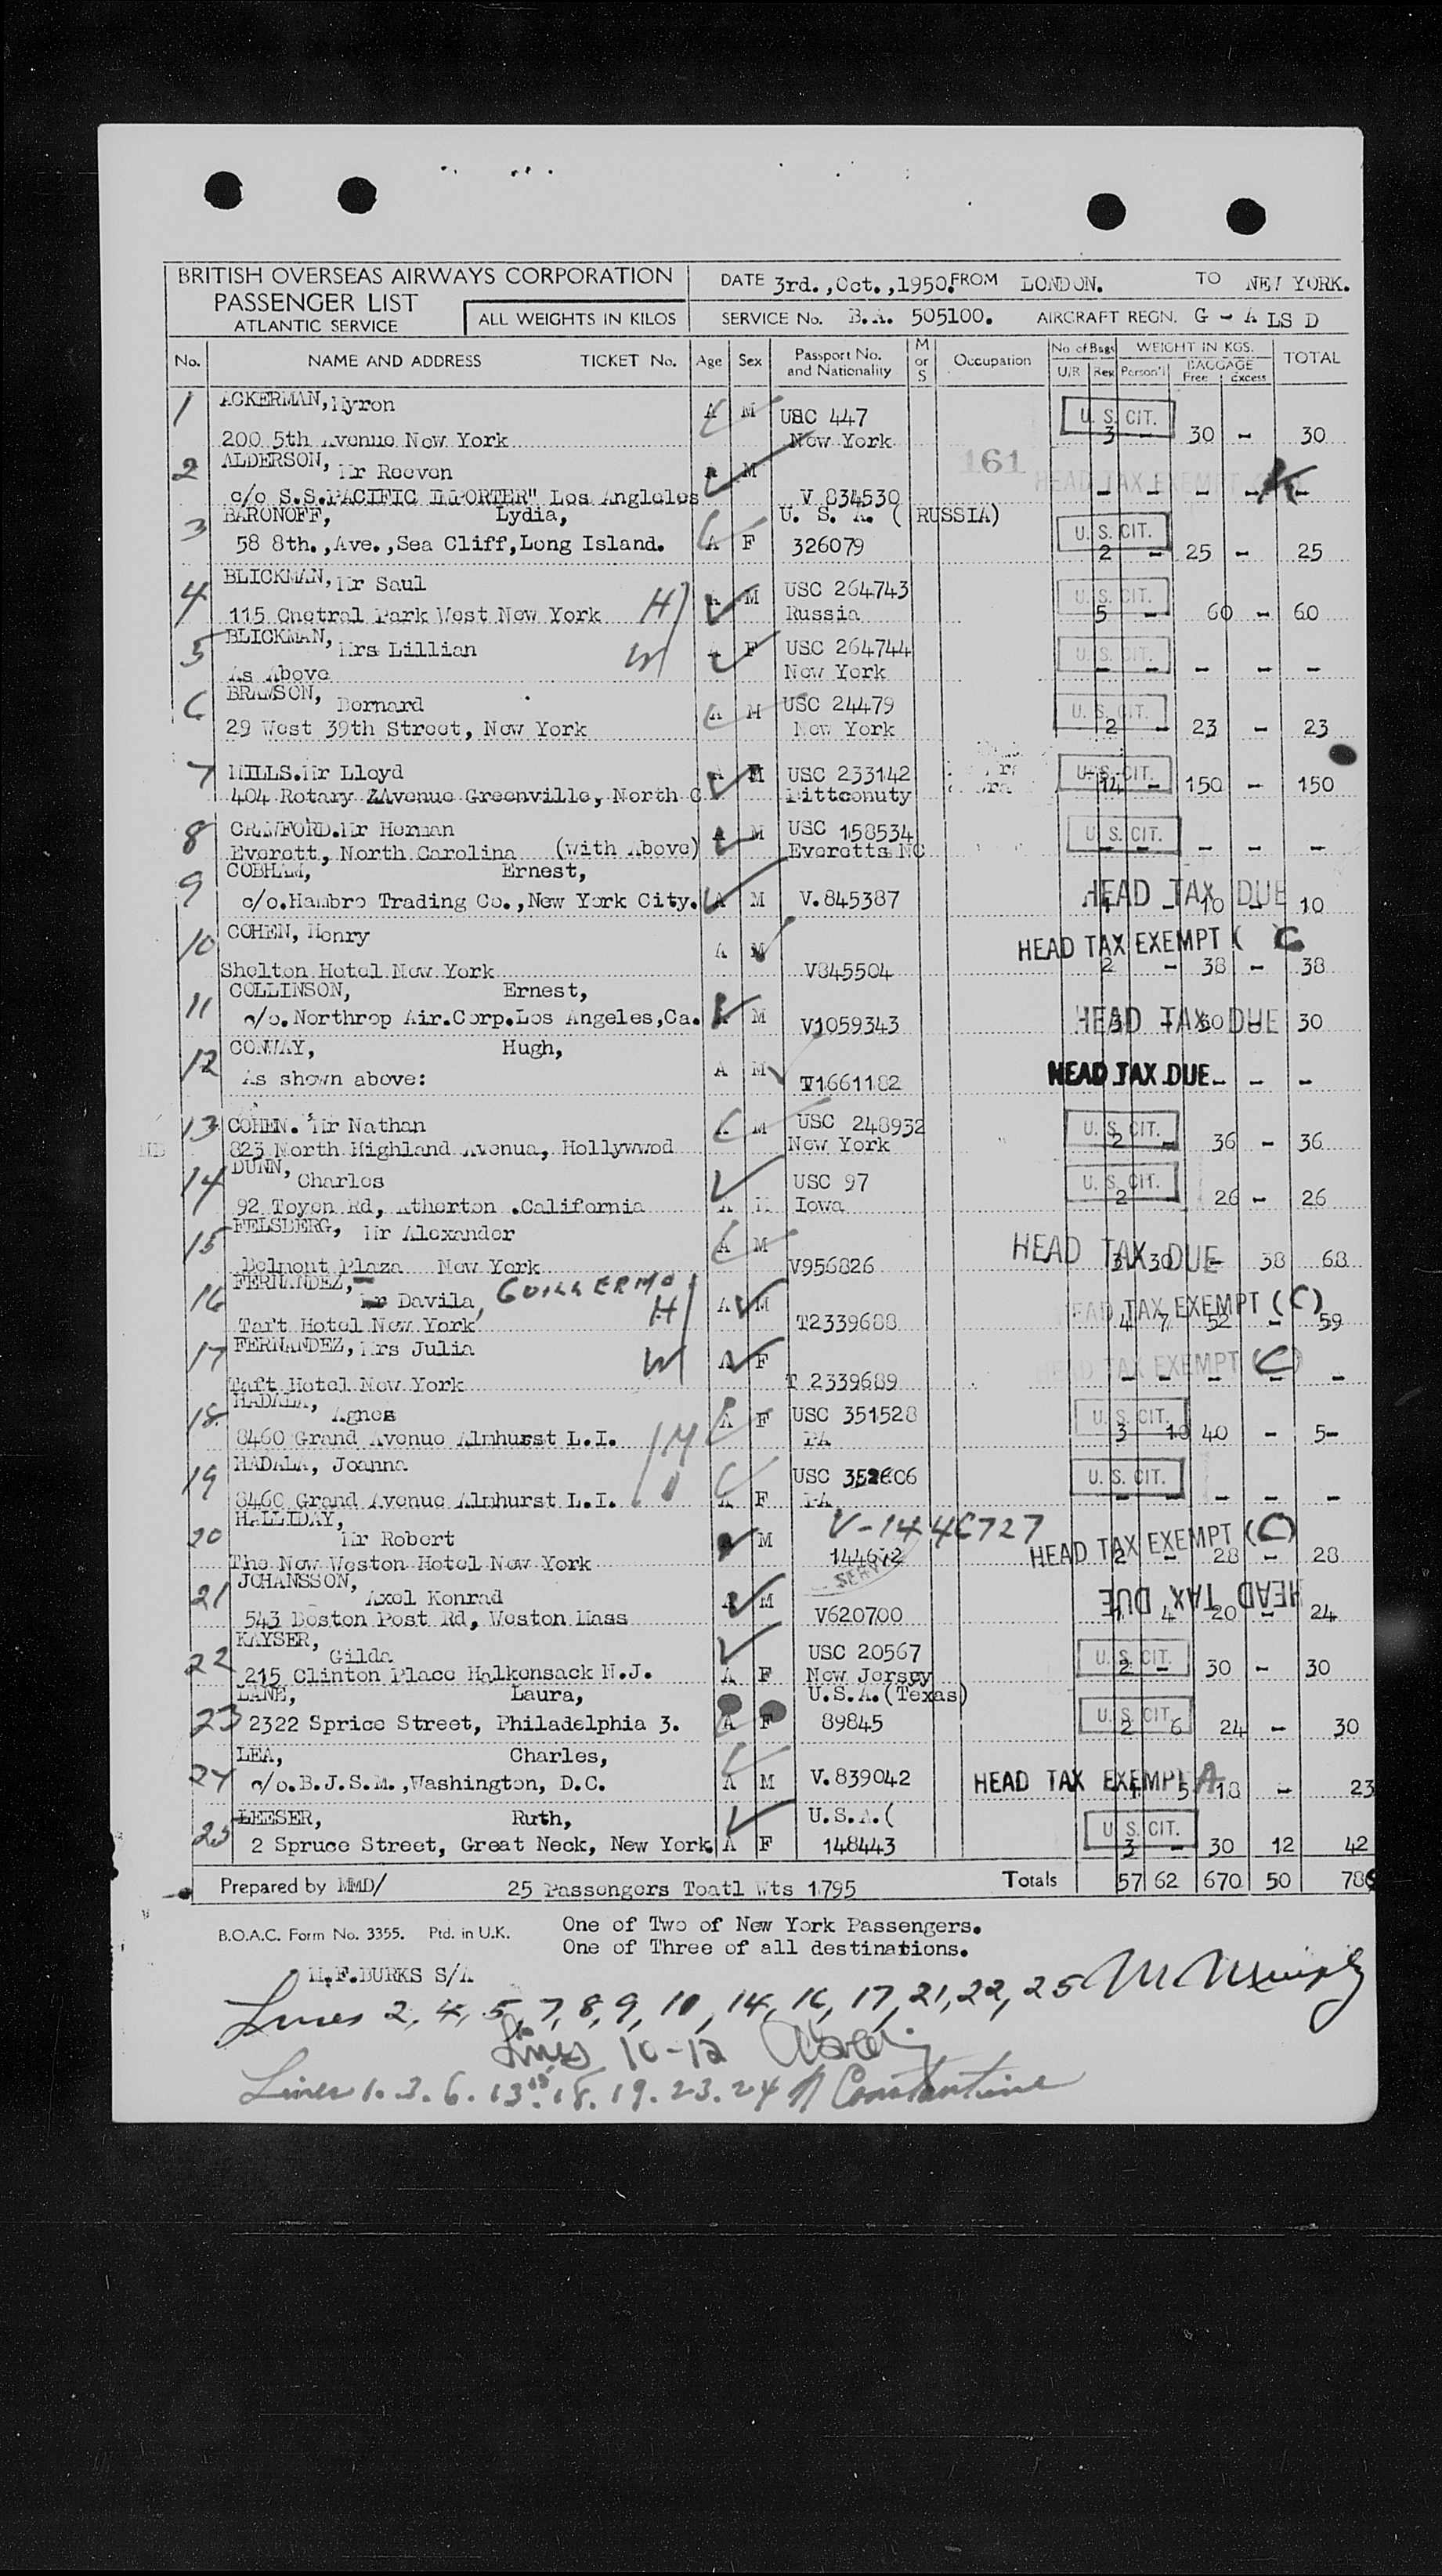 BRITISH OVERSEAS AIRWAYS CORPORATION
PASSENGER LIST
ATLANTIC SERVICE
ALL WEIGHTS IN KILOS
DATE 3rd.,Oct.,1950. FROM LONDON. TO NEW YORK.
SERVICE No. B.A. 505100. AIRCRAFT REGN. G - A LS D
No. NAME AND ADDRESS TICKET No. Age Sex Passport No. and Nationality M or S Occupation No. of Bags U/R Reg WEIGHT IN KGS. Person'l BAGGAGE Free Excess TOTAL
1 ACKERMAN, Myron A M USC 447 U. S. CIT.
200 5th Avenue New York New York 3 - 30 - 30
2 ALDERSON, Mr Reeven A M 161 HEAD TAX EXEMPT
c/o S.S.PACIFIC IMPORTER" Los Angleles V 834530 - - - - -
3 BARONOFF, Lydia, U. S. A. ( RUSSIA) U. S. CIT.
58 8th.,Ave.,Sea Cliff,Long Island. A F 326079 2 - 25 - 25
4 BLICKMAN, Mr Saul A M USC 264743 U. S. CIT.
115 Cnetral Park West New York H Russia 5 - 60 - 60
5 BLICKMAN, Mrs Lillian F USC 264744 U. S. CIT.
As Above W New York - - - - -
6 BRAMSON, Bernard A M USC 24479 U. S. CIT.
29 West 39th Street, New York New York 2 - 23 - 23
7 MILLS.Mr Lloyd A M USC 233142 U. S. CIT.
404 Rotary Avenue Greenville, North C Pittconuty 14 - 150 - 150
8 CRAWFORD.Mr Herman A M USC 158534 U. S. CIT.
Everett, North Carolina (With Above) Everetts NC - - - - -
9 COBHAM, Ernest,
c/o.Hambro Trading Co.,New York City. A M V.845387 HEAD TAX DUE 1 - 10 - 10
10 COHEN, Henry A M HEAD TAX EXEMPT ( C
Shelton Hotel New York V845504 2 - 38 - 38
11 COLLINSON, Ernest,
c/o.Northrop Air.Corp.Los Angeles,Ca. A M V1059343 HEAD TAX DUE 30
12 CONWAY, Hugh,
As shown above: A M T1661182 HEAD TAX DUE - - -
13 COHEN. Mr Nathan A M USC 248932 U. S. CIT.
823 North Highland Avenua, Hollywwod New York 2 - 36 - 36
14 DUNN, Charles USC 97 U. S. CIT.
92 Toyon Rd, Atherton .California A M Iowa 2 - 26 - 26
15 FELSBERG, Mr Alexander A M HEAD TAX DUE
Belmont Plaza New York V956826 3 30 - 38 68
16 FERNANDEZ, Mr Davila, GUILLERMO H A M HEAD TAX EXEMPT (C)
Taft Hotel New York T2339688 4 7 52 - 59
17 FERNANDEZ, Mrs Julia W A F HEAD TAX EXEMPT (C)
Taft Hotel New York T 2339689 - - - - -
18 HADALA, Agnes A F USC 351528 U. S. CIT.
8460 Grand Avenue Almhurst L.I. M PA 3 10 40 - 5-
19 HADALA, Joanna USC 352606 U. S. CIT.
8460 Grand Avenue Almhurst L.I. D A F PA - - - - -
20 HALLIDAY, V-1446727
Mr Robert M 144672 HEAD TAX EXEMPT (C)
The New Weston Hotel New York 2 - 28 - 28
21 JOHANSSON, Axel Konrad A M HEAD TAX DUE
543 Boston Post Rd, Weston Mass V620700 1 4 20 - 24
22 KAYSER, Gilda USC 20567 U. S. CIT.
215 Clinton Place Halkensack N.J. A F New Jersey 2 - 30 - 30
23 LANE, Laura, U.S.A.(Texas) U. S. CIT.
2322 Sprice Street, Philadelphia 3. A F 89845 2 6 24 - 30
24 LEA, Charles,
c/o.B.J.S.M.,Washington, D.C. A M V.839042 HEAD TAX EXEMPT A 1 5 18 - 23
25 LEESER, Ruth, U.S.A.( U. S. CIT.
2 Spruce Street, Great Neck, New York. A F 148443 3 - 30 12 42
Prepared by MMD/ 25 Passengers Toatl Wts 1795 Totals 57 62 670 50 78
B.O.A.C. Form No. 3355. Ptd. in U.K. One of Two of New York Passengers.
One of Three of all destinations.
M.F.BURKS S/A
Lines 2, 4, 5, 7, 8, 9, 10, 14, 16, 17, 21, 22, 25
Lines 10-12
Lines 1. 3. 6. 13. 15. 18. 19. 23. 24 Constantine